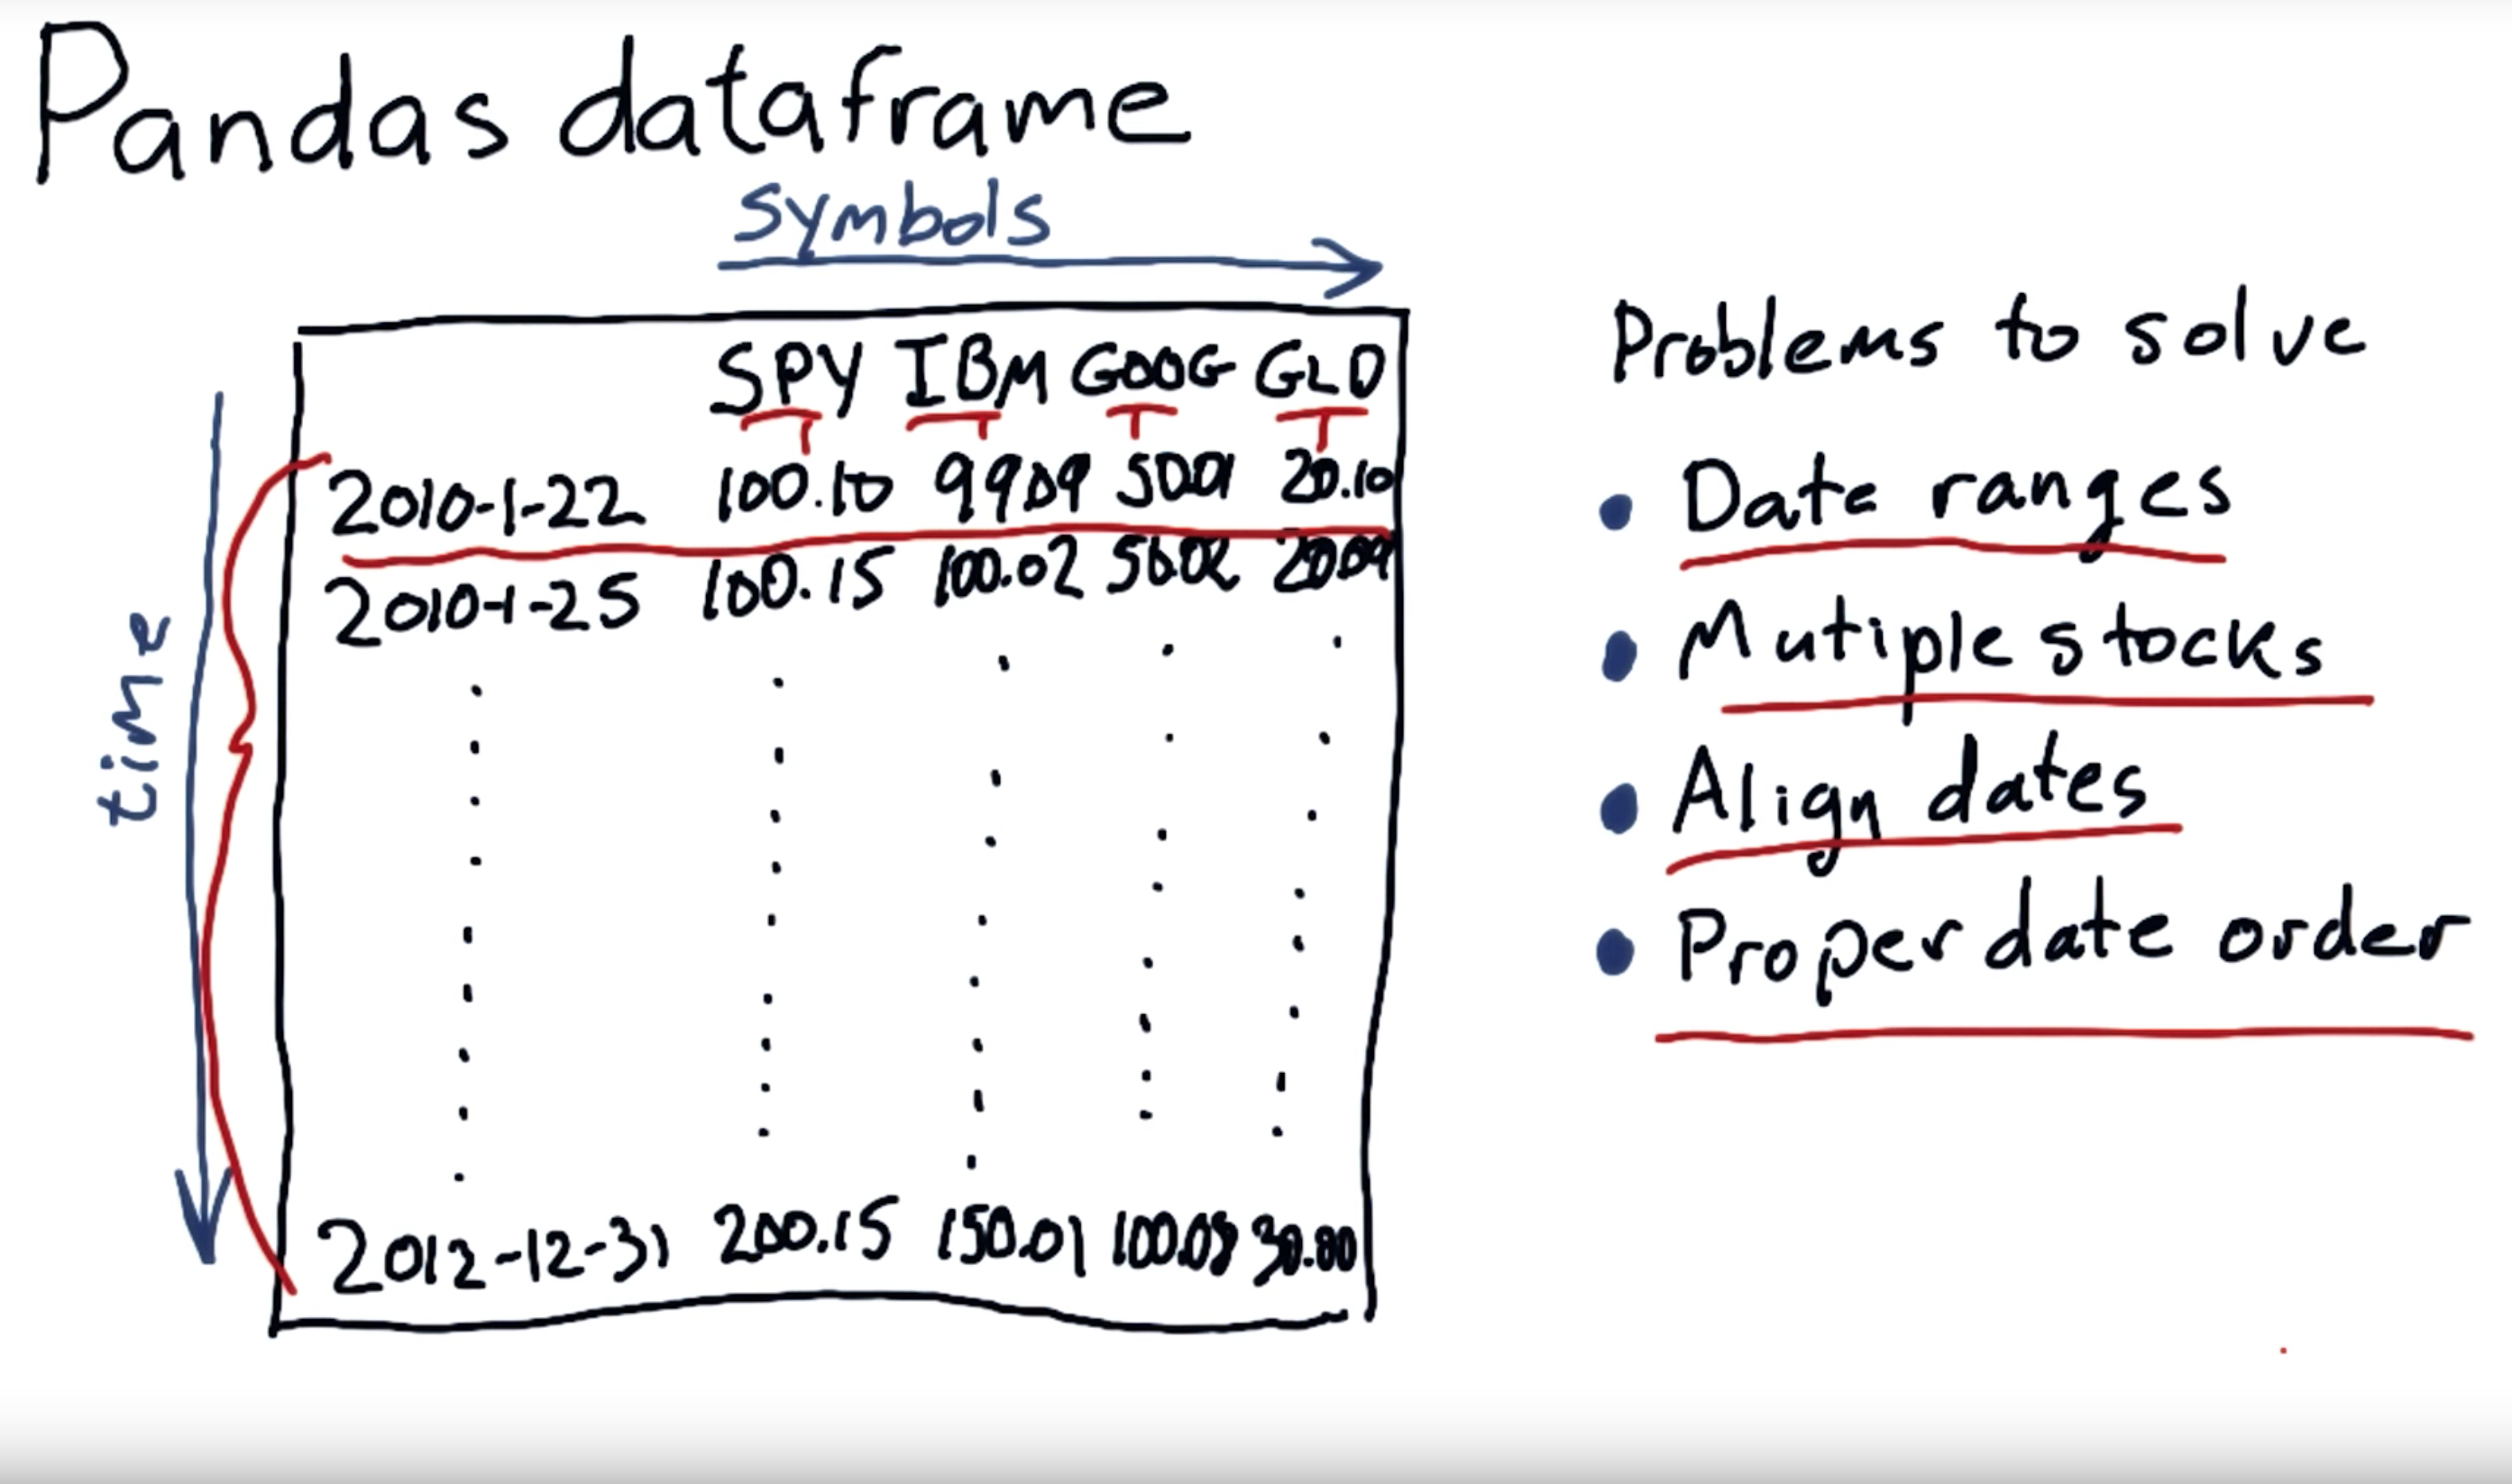 Pandas dataframe
symbols
time
SPY IBM GOOG GLD
2010-1-22 100.10 20.10
2010-1-25 100.15 100.02 50.02 20.09
2012-12-31 200.15 150.01 30.00
Problems to solve
• Date ranges
• Mutiple stocks
• Align dates
• Proper date order